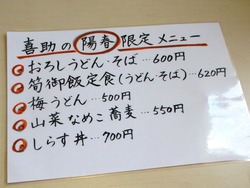 喜助の陽春限定メニュー
おろしうどん・そば…600円
筍御飯定食(うどん・そば)…620円
梅うどん…500円
山菜なめこ蕎麦…550円
しらす丼…700円